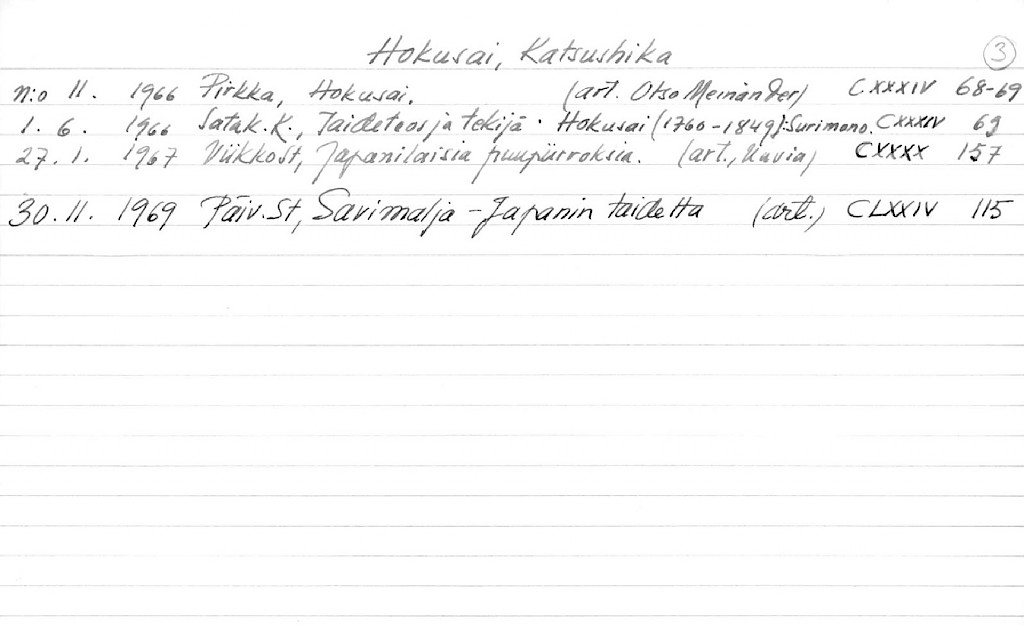 Hokusai, Katsushika 3
n:o 11. 1966 Pirkka, Hokusai. (art. Otso Meinander) CXXXIV 68-69
1. 6. 1966 Satak. K., Taideteos ja tekijä. Hokusai (1760-1849): Surimono. CXXXIV 69
27. 1. 1967 Viikkos​t, Japanilaisia puupiirroksia. (art., kuvia) CXXXX 157
30. 11. 1969 Päiv. St, Savimalja - Japanin taidetta (art.) CLXXIV 115